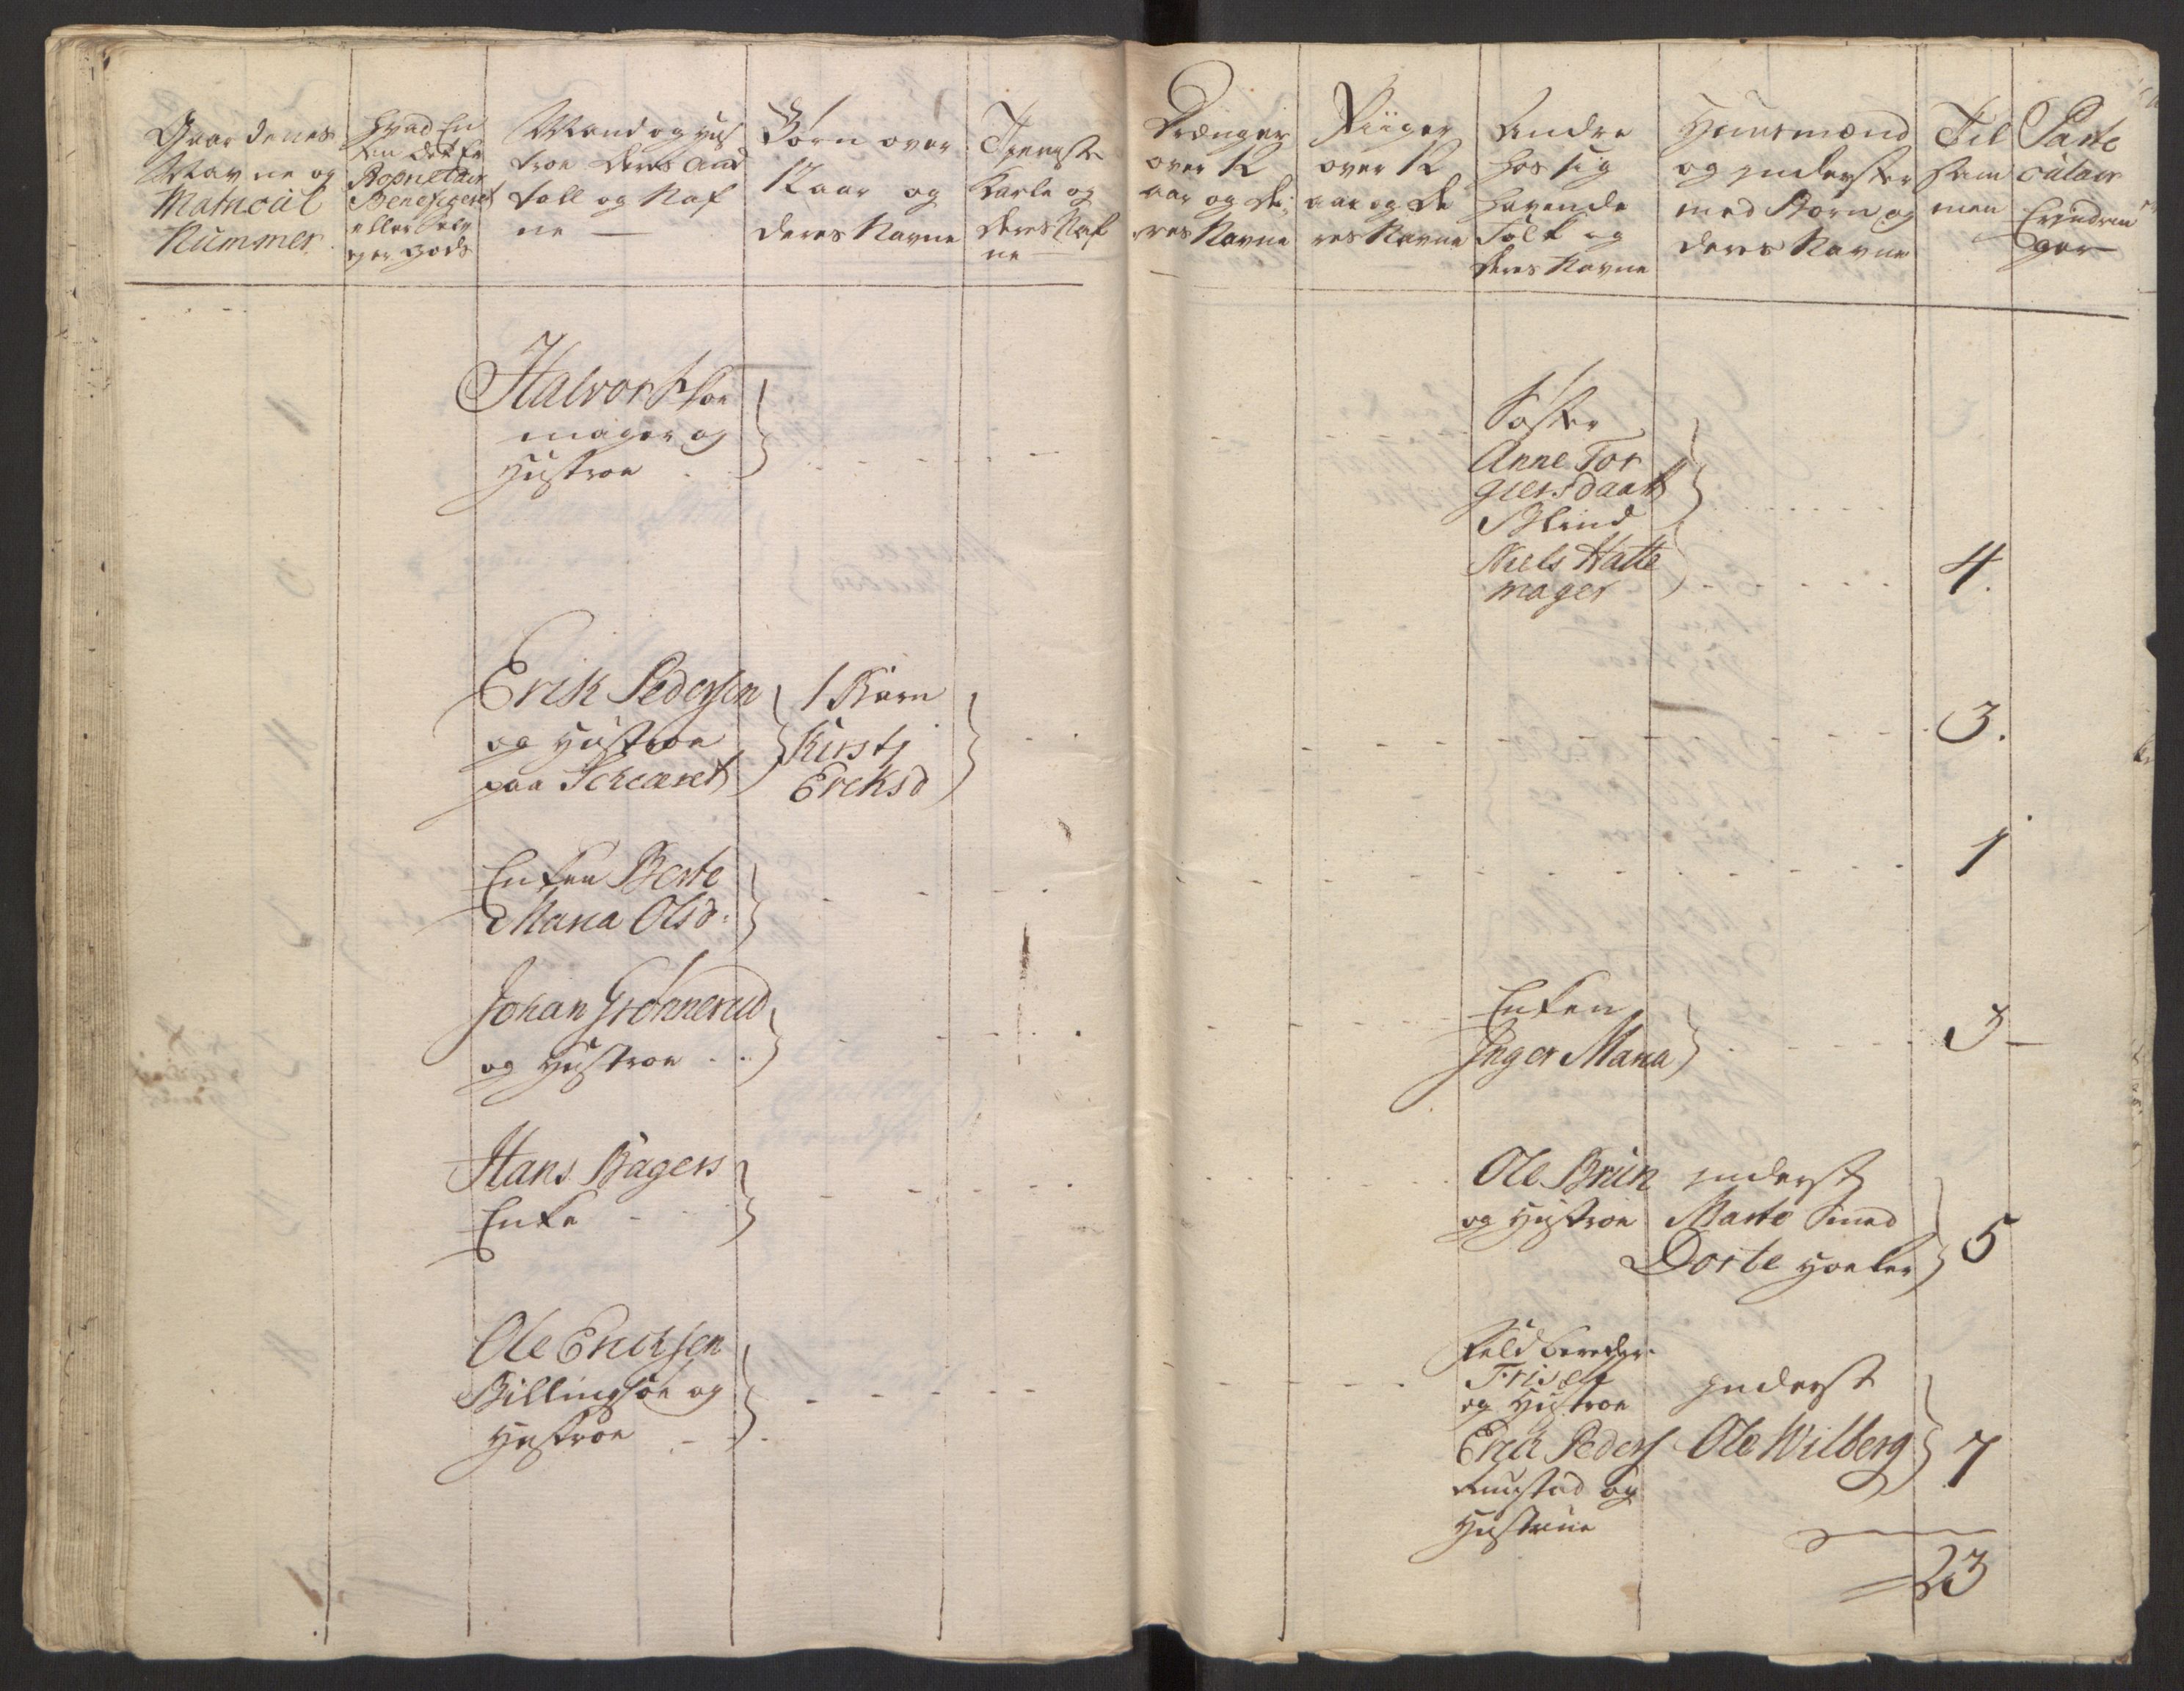 Gaardenes
Navne og
Matricul
Nummer
Hvad En
ten det er
Proprietair
Beneficeret
eller Selv
ejer Gods
Mand og Hus
troe deres And
tall og Naf
ne
Børn over
12 aar og
deres Navne
Tieneste
Karle og
deres Naf
ne
Drænger
over 12
aar og de-
res Navne
Piiger
over 12
aar og de
res Navne
Andre
hos sig
havende
Folk og
deres Navne
Huusmænd
og Inderster
med Børn og
deres Navne
Til
sam
men
Parti
culair
Erindrin
ger
Halvor Skoe
mager og
Hustroe
Søster
Anne Tor
giersdaatt
Blind
Niels Hatte
mager
4.
Erik Pedersen
og Hustroe
paa
1 Barn
Kirstj
Ericksd
3.
Enken Berte
Maria Olsd:
1
Johan Grønnerud
og Hustroe
Enken
Inger Maria
3
Hans Bagers
Enke
Ole Brun
og Hustroe
Inderst
Marte Smed
Dorte
5
Ole Erichsen
Billingsøe og
Hustroe
Feldbereder
og Hustroe
Erich Peders
og
Hustrue
Inderst
Ole Wilberg
7
23